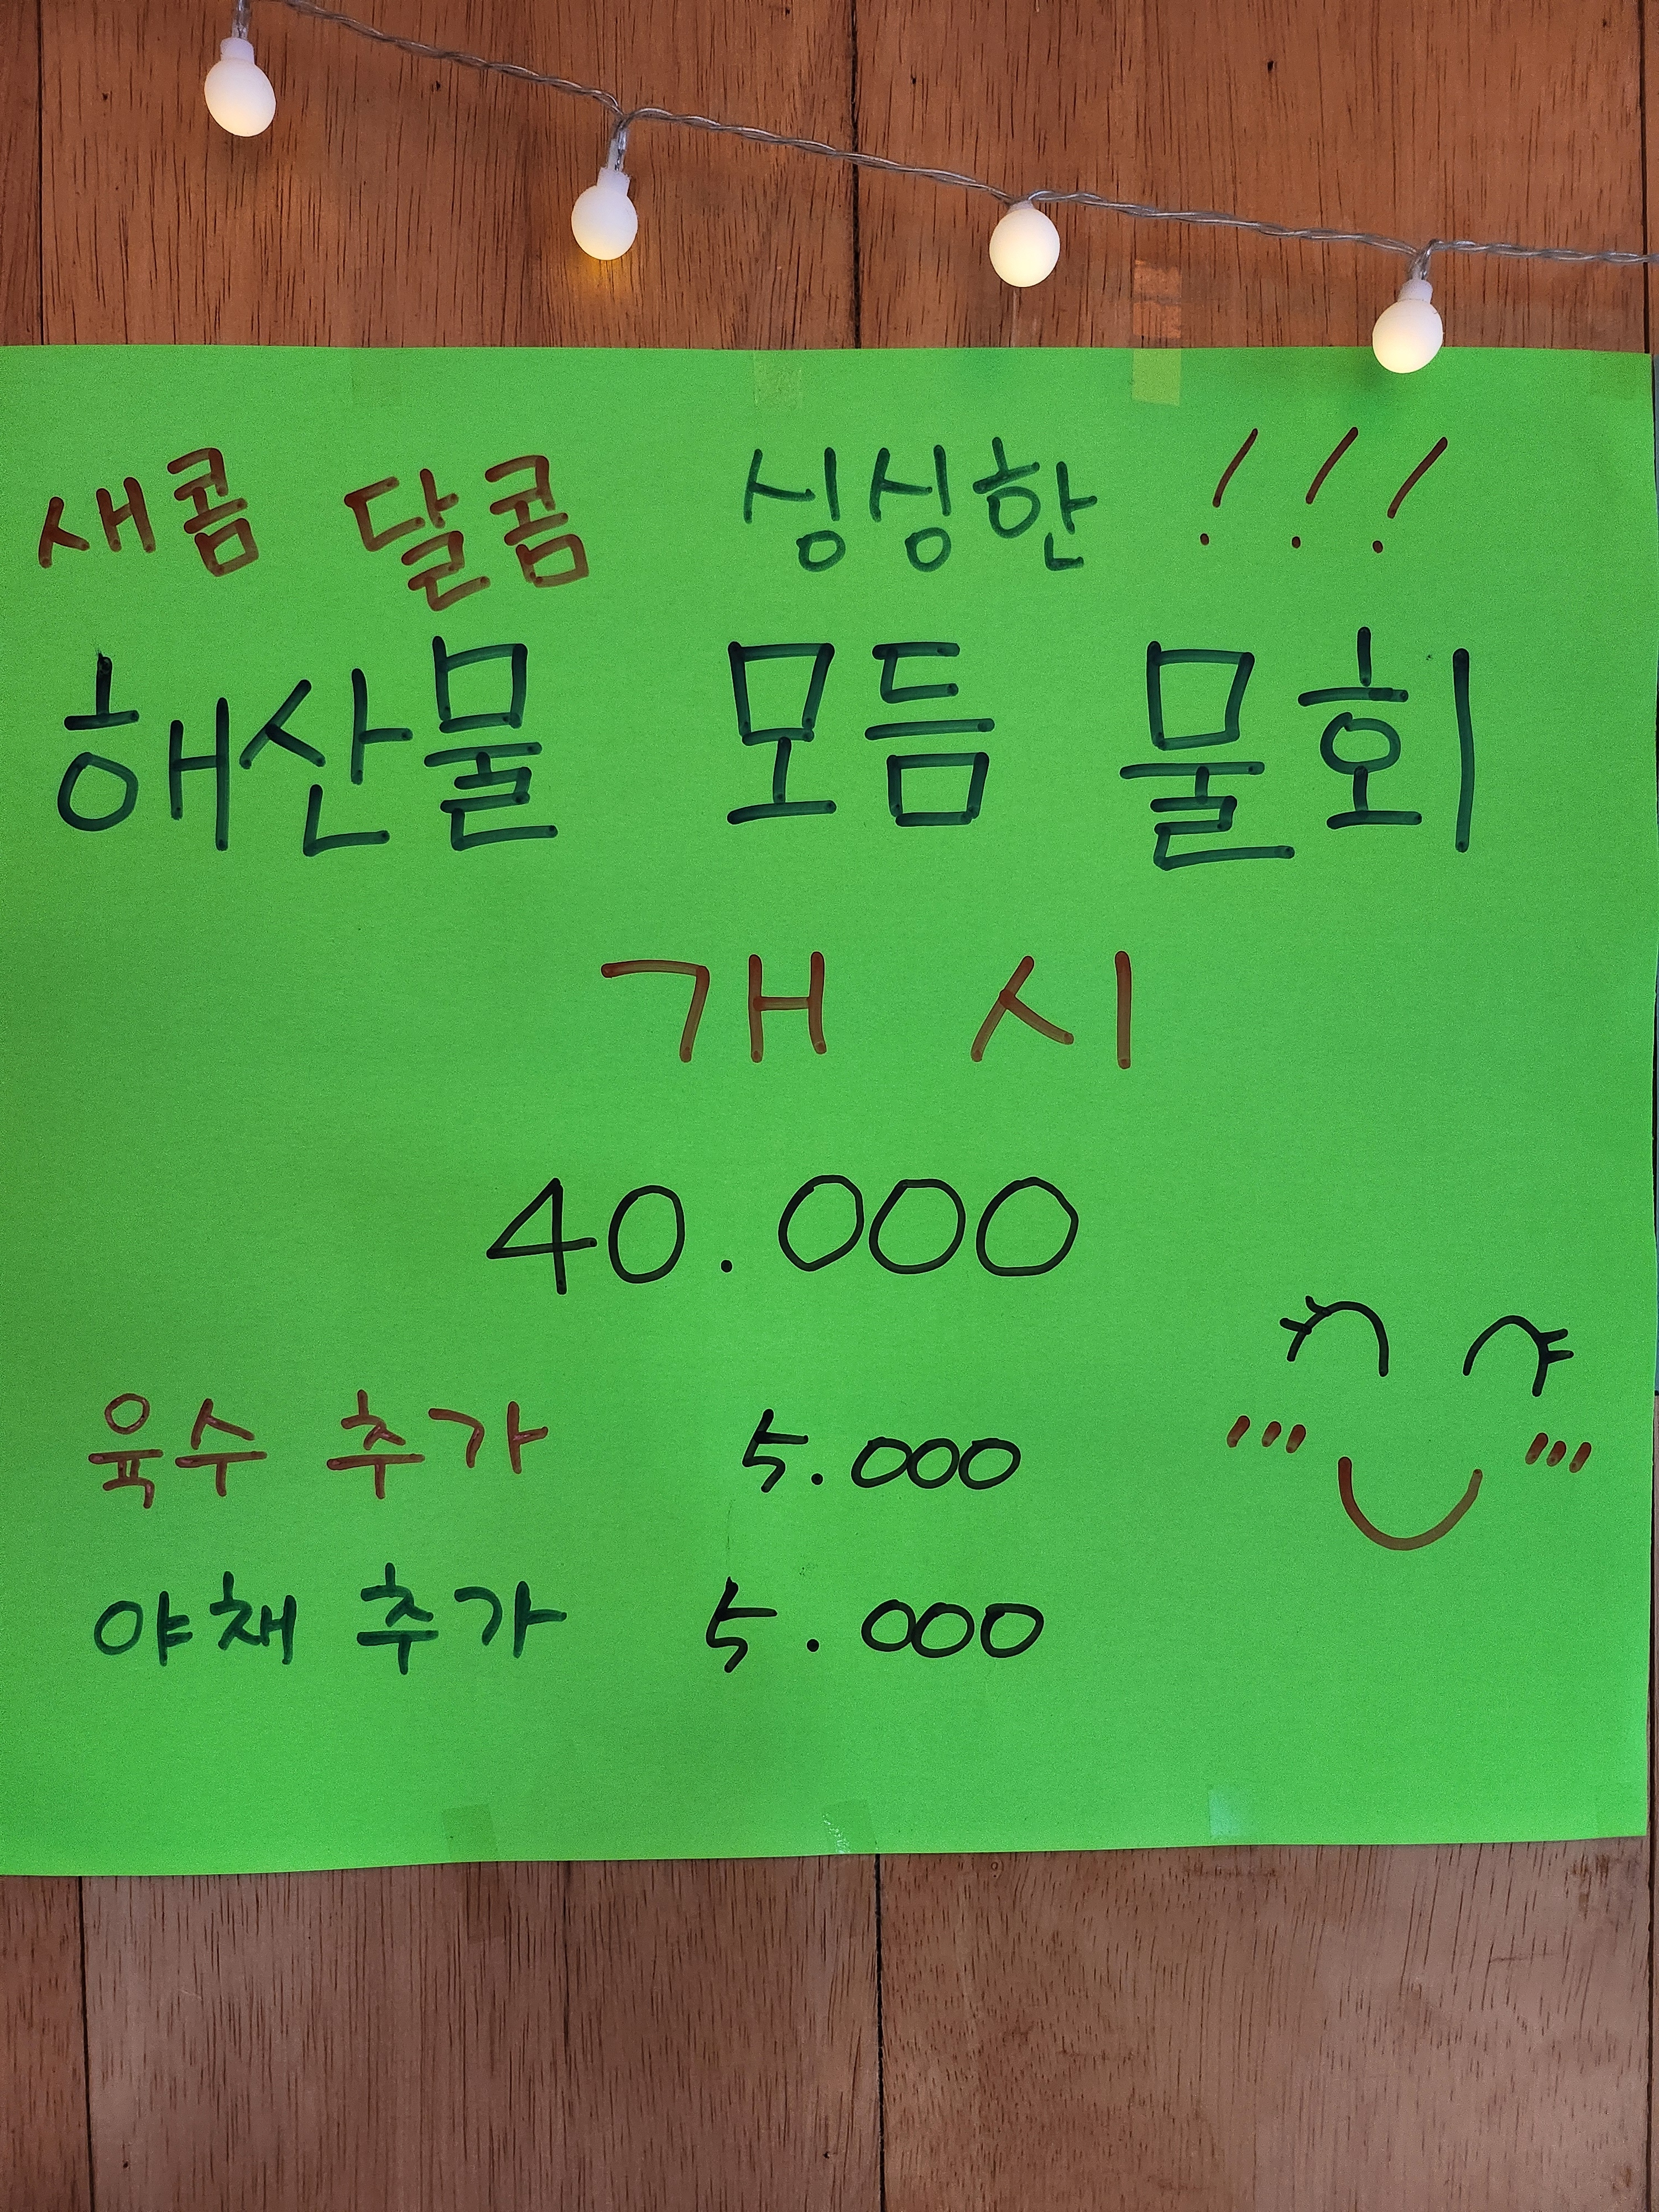 새콤 달콤 싱싱한 !!!
해산물 모듬 물회
개 시
40.000
육수 추가 5.000
야채 추가 5.000